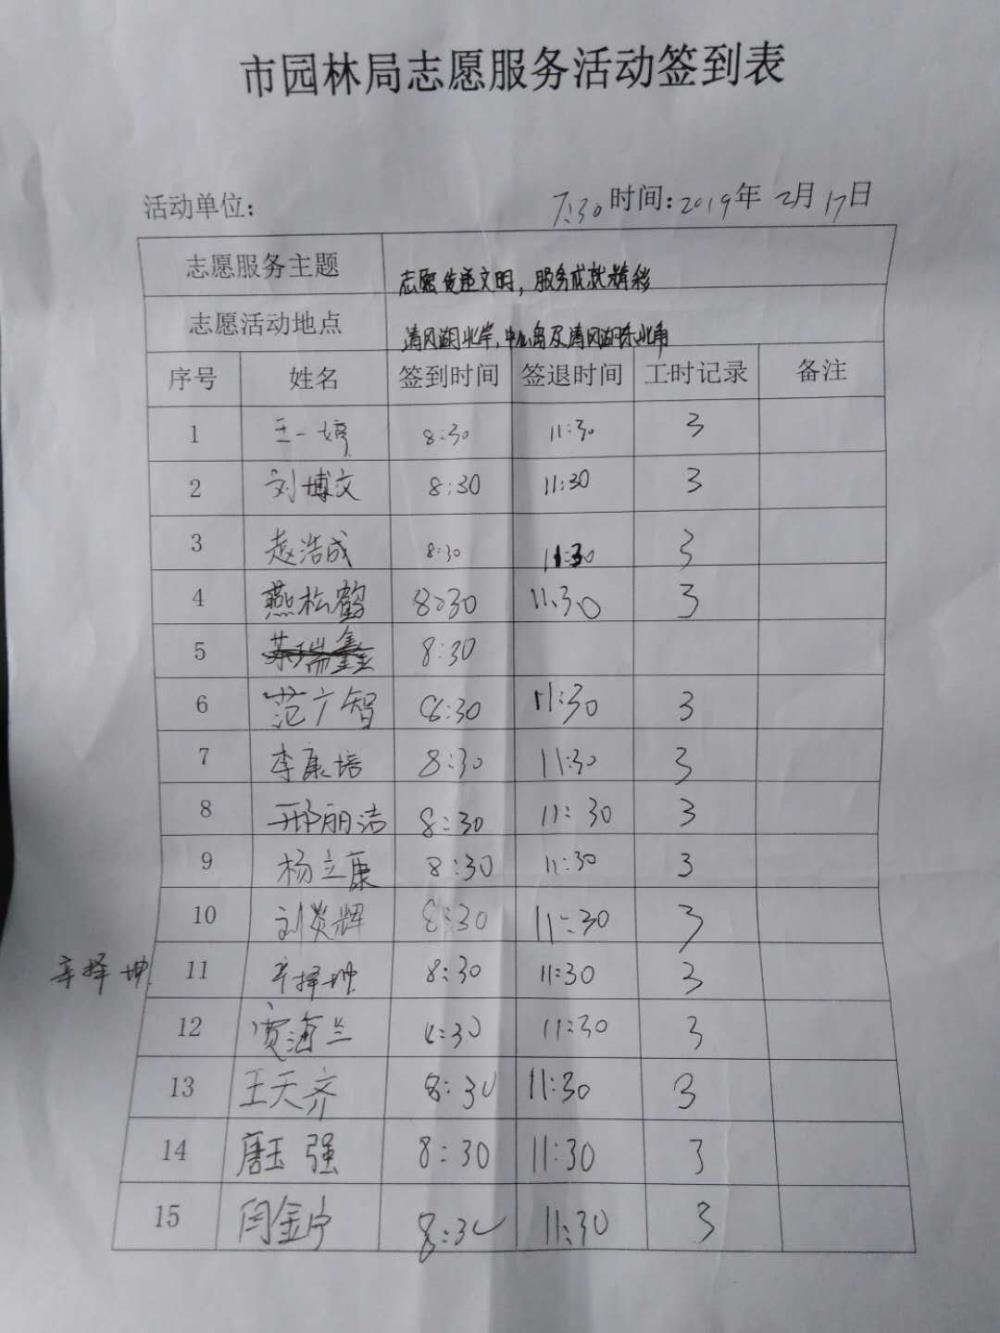 市园林局志愿服务活动签到表
活动单位: 7:30 时间:2019年 2月 17日
志愿服务主题 志愿传递文明，服务成就精彩
志愿活动地点 清风湖北岸,中心岛及清风湖东北角
序号 姓名 签到时间 签退时间 工时记录 备注
1 王一婷 8:30 11:30 3
2 刘博文 8:30 11:30 3
3 赵浩成 8:30 11:30 3
4 燕松鹤 8:30 11:30 3
5 瑞鑫 8:30
6 范广智 8:30 11:30 3
7 李康培 8:30 11:30 3
8 邢丽洁 8:30 11:30 3
9 杨立康 8:30 11:30 3
10 刘炎辉 8:30 11:30 3
辛择坤 11 辛择坤 8:30 11:30 3
12 贾海兰 8:30 11:30 3
13 王天齐 8:30 11:30 3
14 唐玉强 8:30 11:30 3
15 闫金宁 8:30 11:30 3